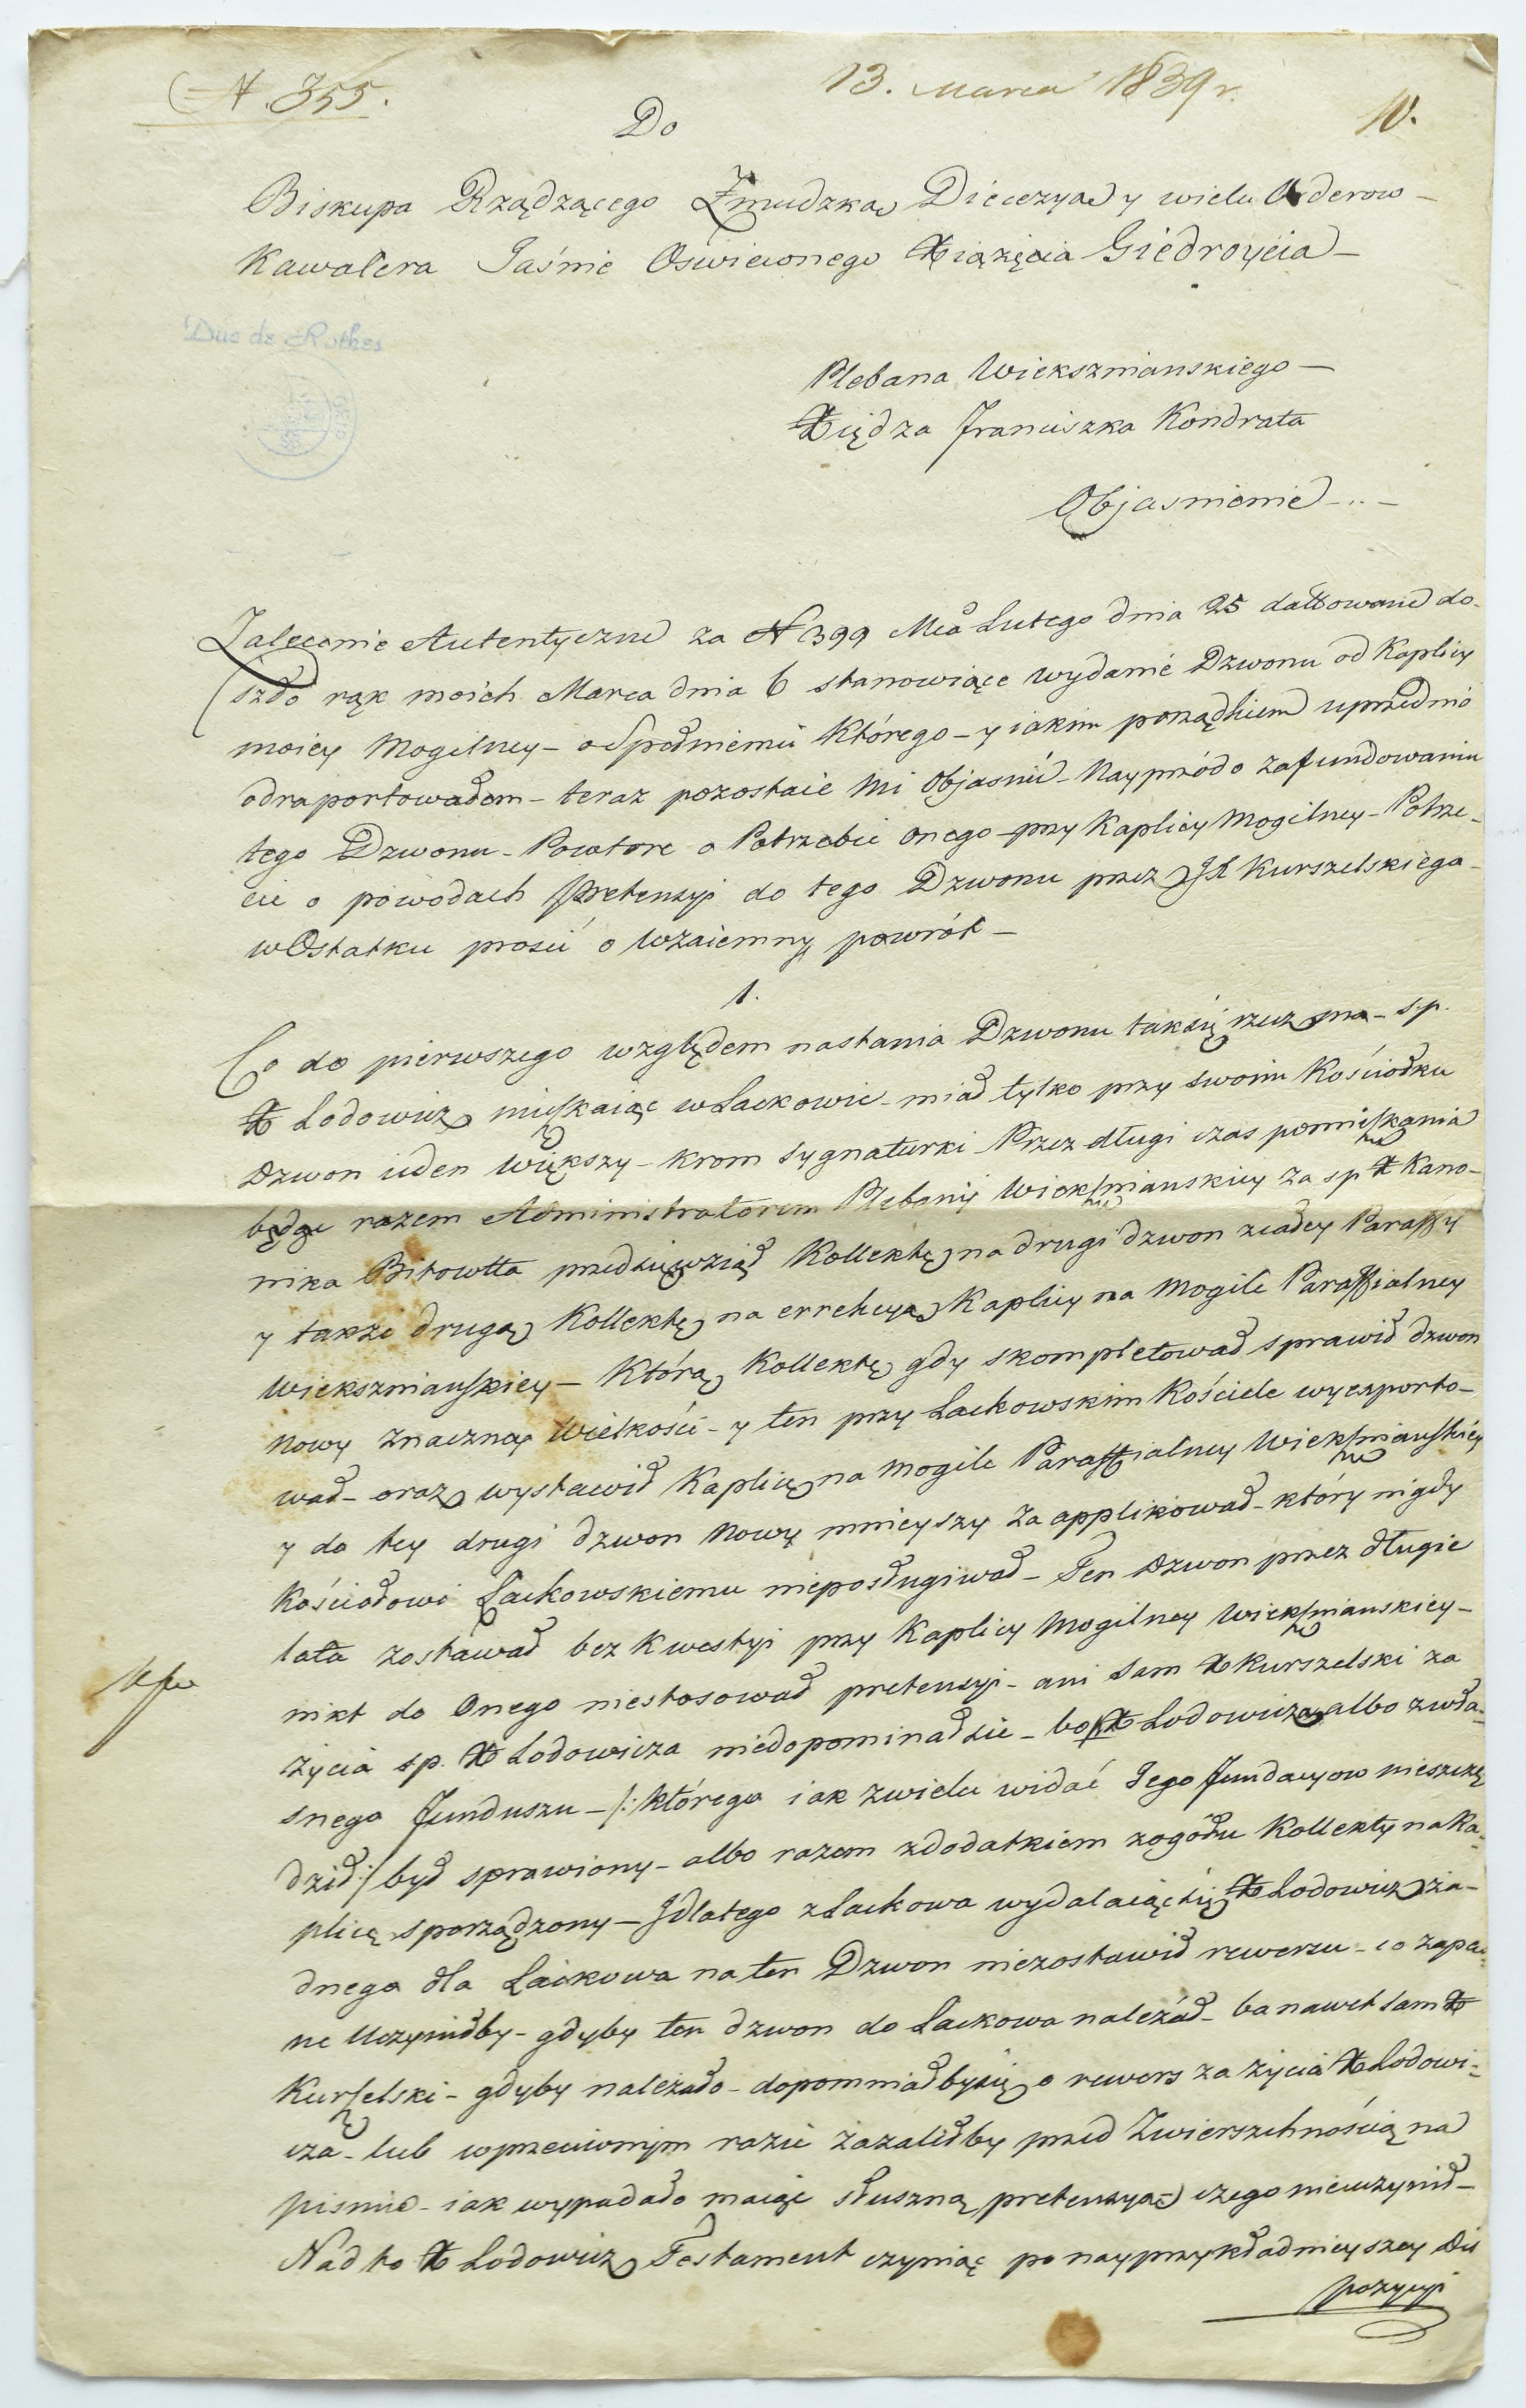 N. 355.
13. Marca 1839 r.
10.
Do
Biskupa Rządzącego Żmudzką Diecezyą y wielu Orderow
Kawalera Jaśnie Oswieconego Xiążęcia Giedroycia
Plebana Wiekszniańskiego
Xiędza Franciszka Kondrata
Objasnienie
Zalecenie Autentyczne za N 399 Mca Lutego dnia 25 dattowane do-
szło rąk moich Marca dnia 6 stanowiące wydanie Dzwonu od Kaplicy
moiey Mogilney - o Spełnieniu Którego - y iakim porządkiem uprzednio
odraportowałem - teraz pozostaie mi Objasnić - Nayprzód o zafundowaniu
tego Dzwonu - Powtore o Potrzebie onego przy Kaplicy Mogilney - Potrze-
cie o powodach Pretensyi do tego Dzwonu przez JX Kurszelskiego -
w Ostatku prosić o Wzaiemny powrót -
1.
Co do pierwszego względem nastania Dzwonu tak się rzecz ma - s.p.
X Lodowicz mięszkaiąc w Lackowie - miał tylko przy swoim Kościołku
Dzwon ieden Większy - krom sygnaturki Przez długi czas pomieszkania
będąc razem Administratorem Plebanij Wieksznianskiey za sp X Kano-
nika Bitowtta przedsięwziął Kollektę na drugi dzwon z całey Paraffij
y takze drugą Kollektę na errekcyą Kaplicy na Mogile Paraffialney
Wiekszniańskiey - Którą Kollektę gdy skompletował sprawił dzwon
nowy znaczney Wielkości - y ten przy Lackowskim Kościele wyexporto-
wał - oraz wystawił Kaplicę na Mogile Paraffialney Wieksznianskiey
y do tey drugi dzwon Nowy mnieyszy zaapplikował - który nigdy
Kościołowi Lackowskiemu nieposługiwał - Ten Dzwon przez długie
lata zostawał bez Kwestyi przy Kaplicy Mogilney Wieksznianskiey -
nikt do Onego niestosował pretensyi - ani sam X Kurszelski za
życia sp. X Lodowicza niedopominał sie - bo X Lodowicza albo z wła-
snego Funduszu - /: którego iak z wielu widać Jego Fundacyow nieszczę
dził :/ był sprawiony - albo razem z dodatkiem z ogółu Kollekty na Ka-
plicę sporządzony - I dlatego z Lackowa wydalaiąc się X Lodowicz ża-
dnego dla Lackowa na ten Dzwon niezostawił rewersu - co zapew-
ne Uczyniłby - gdyby ten dzwon do Lackowa należał - ba nawet sam X
Kurszelski - gdyby należało - dopomniałby się o rewers za życia X Lodowi-
cza - lub w przeciwnym razie żażaliłby przed Zwierzchnością na
pismie - iak wypadało maiąc słuszną pretensyą czego nieuczynił -
Nad to X Lodowicz Testament czyniąc po nayprzykładnieyszey Dis
pozycyi